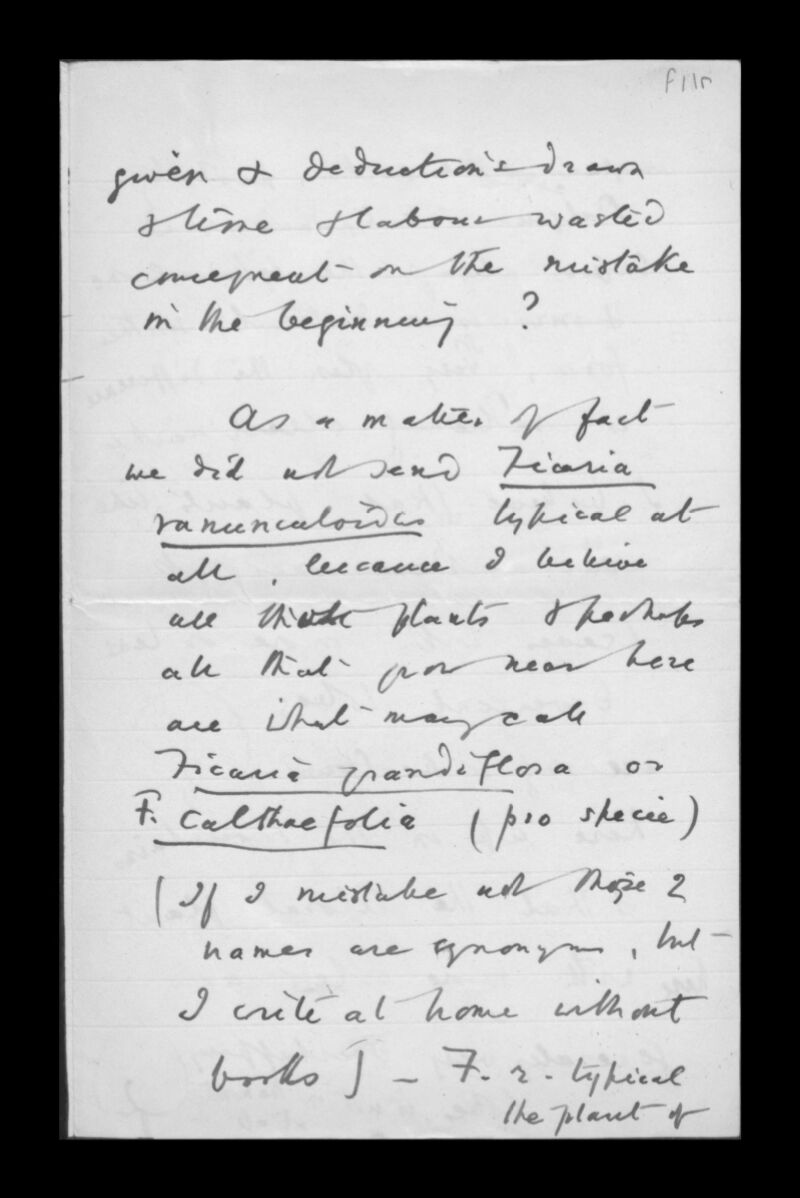 f11r
given & deductions drawn
& time & labour wasted
consequent on the mistake
in the beginning ?
As a matter of fact
we did not send Ficaria
ranunculoides typical at
all, because I believe
all those plants & perhaps
all that grow near here
are what many call
Ficaria grandiflora or
F. calthaefolia (pro specie)
(If I mistake not those 2
names are synonyms, but
I write at home without
books) – F. r. typical
the plant of